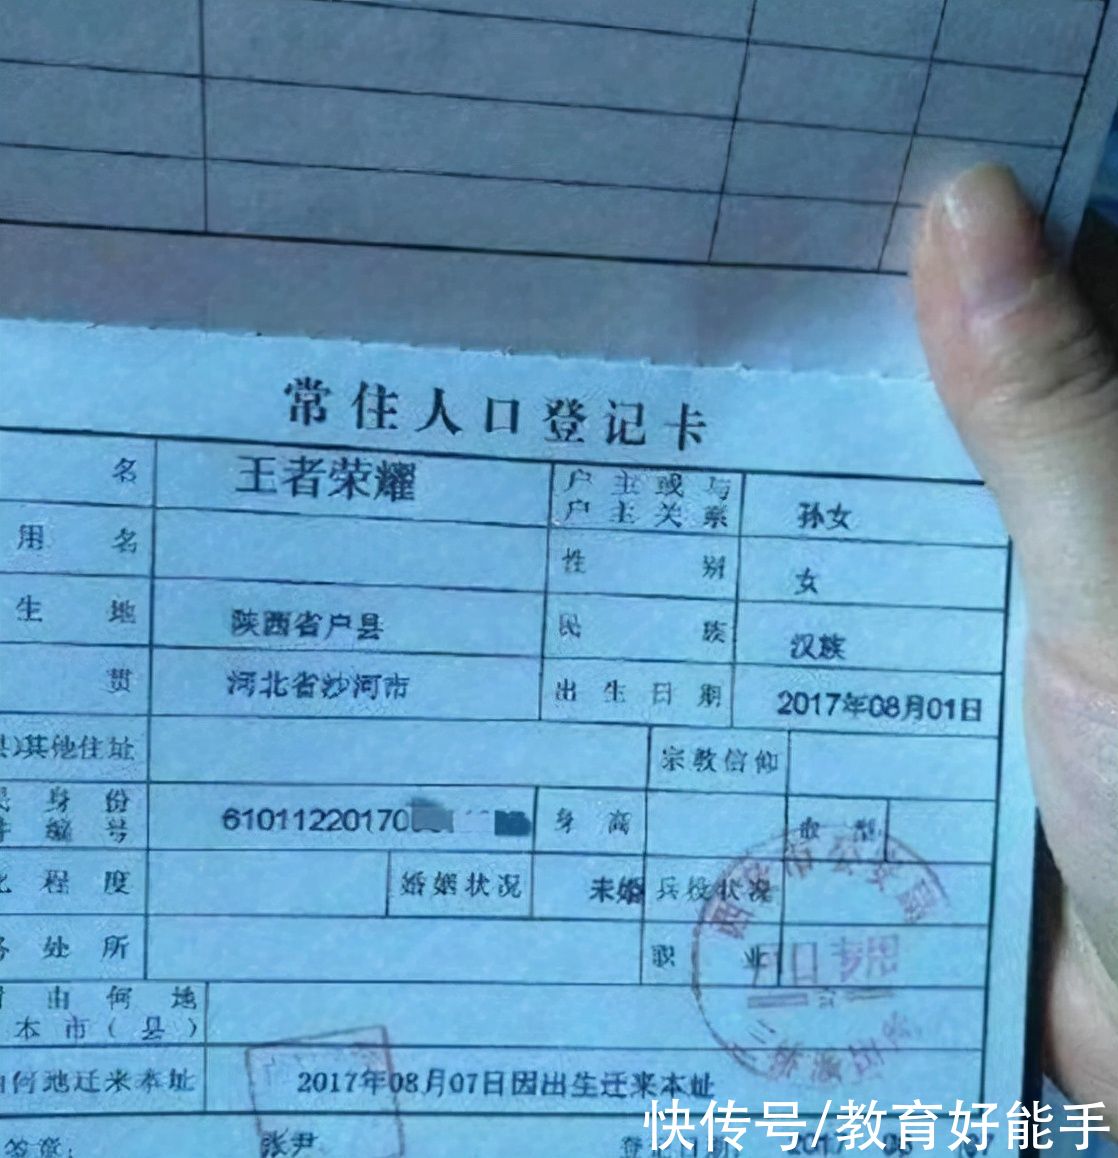 常住人口登记卡
名 王者荣耀 户主或与户主关系 孙女
用名 性别 女
生地 陕西省户县 民族 汉族
贯 河北省沙河市 出生日期 2017年08月01日
县)其他住址 宗教信仰
民身份件编号 61011220170 身高 血型
化程度 婚姻状况 未婚 兵役状况
务处所 职业
由何地
本市(县)
由何地迁来本址 2017年08月07日因出生迁来本址
签章: 张尹 登记日期
西安市公安局
户口专用
快传号/教育好能手